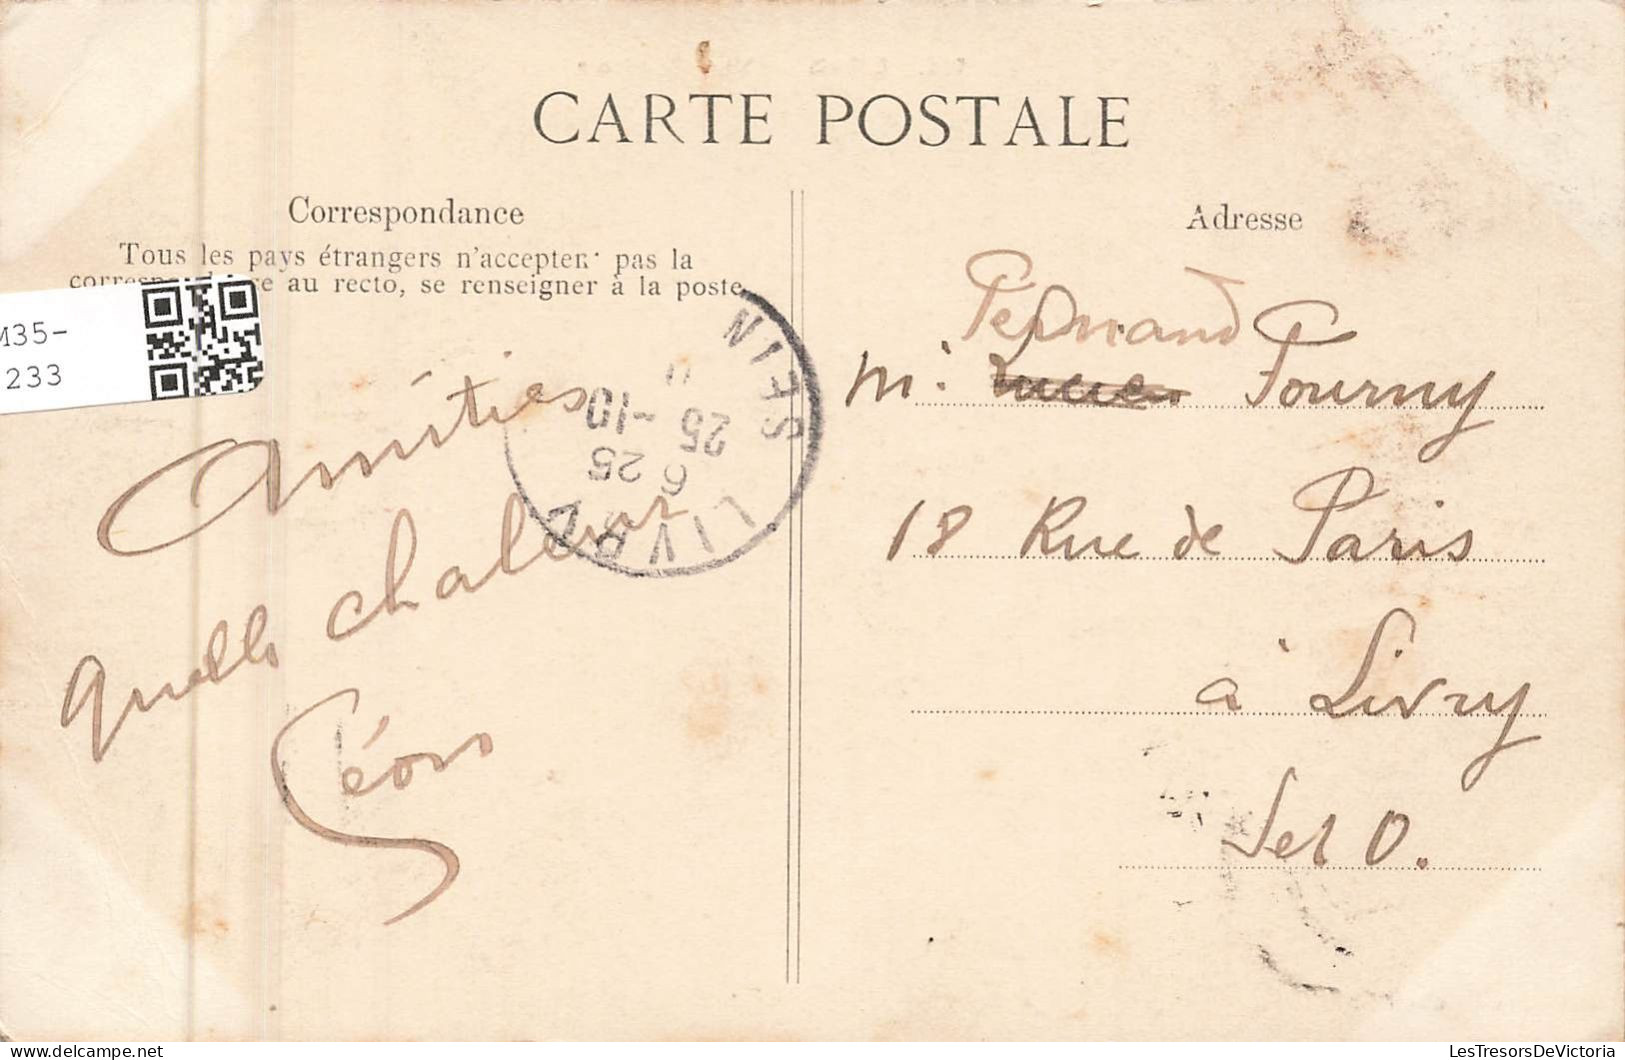 CARTE POSTALE
Correspondance
Tous les pays étrangers n'acceptent pas la
au recto, se renseigner à la poste
M35-
1233
Amitiés
quelle chaleur
Léon
LIVRY
SEIN
6 25
25 -10
Adresse
Fernand
M. Lucien Fourny
18 Rue de Paris
à Livry
S et O.
LesTresorsDeVictoria